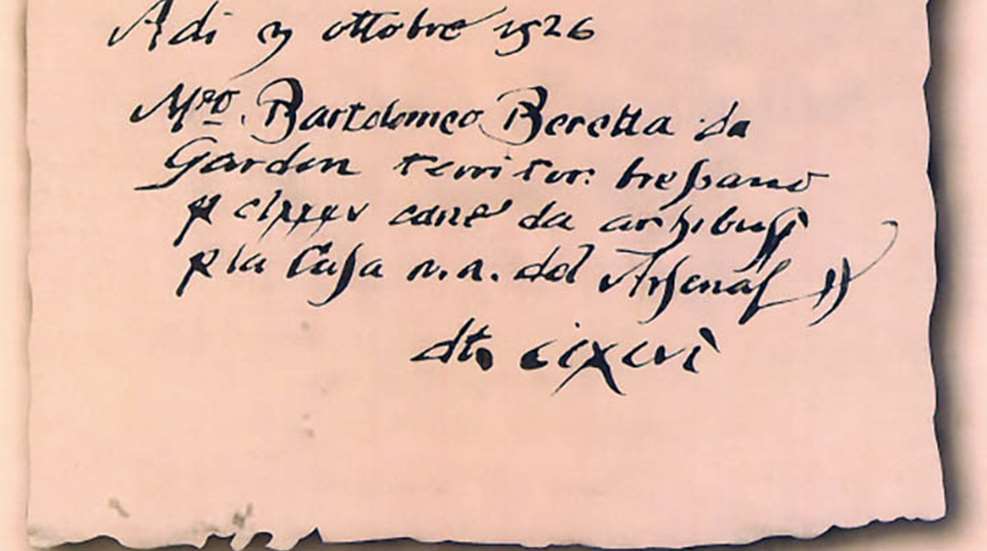 Adi 3 ottobre 1526
Mro. Bartolomeo Beretta da
Gardon territor: bressano
p clxxxv cane da archibusi
p la Casa n.a. del Arsenal
dto